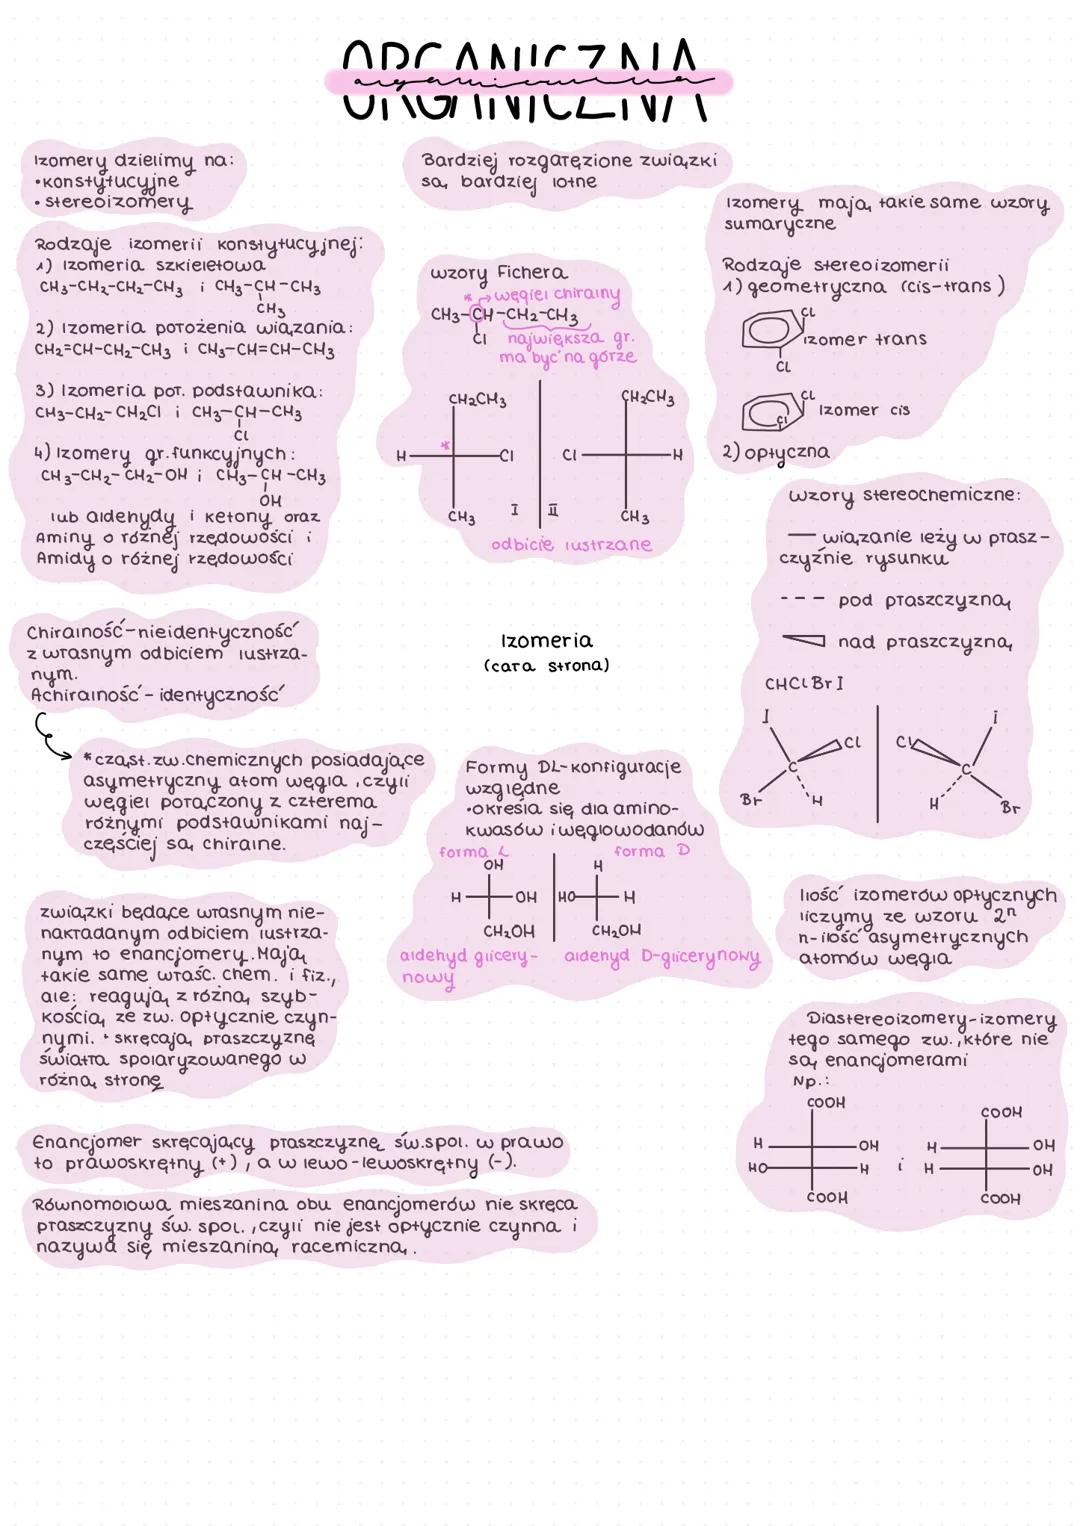 ORGANICZNA
organiczna
Izomery dzielimy na:
•konstytucyjne
• stereoizomery
Bardziej rozgałęzione związki
są bardziej lotne
Izomery mają takie same wzory
sumaryczne
Rodzaje izomerii konstytucyjnej:
1) Izomeria szkieletowa
CH3-CH2-CH2-CH3 i CH3-CH-CH3
CH3
2) Izomeria położenia wiązania:
CH2=CH-CH2-CH3 i CH3-CH=CH-CH3
3) Izomeria poł. podstawnika:
CH3-CH2-CH2Cl i CH3-CH-CH3
Cl
4) Izomery gr. funkcyjnych:
CH3-CH2-CH2-OH i CH3-CH-CH3
OH
lub aldehydy i ketony oraz
Aminy o różnej rzędowości i
Amidy o różnej rzędowości
wzory Fichera
* węgiel chiralny
CH3-CH-CH2-CH3
Cl największa gr.
ma być na górze
CH2CH3 CH2CH3
*
H Cl Cl H
CH3 I II CH3
odbicie lustrzane
Rodzaje stereoizomerii
1) geometryczna (cis-trans)
Cl
izomer trans
Cl
Cl
Cl Izomer cis
2) optyczna
wzory stereochemiczne:
— wiązanie leży w płasz-
czyźnie rysunku
--- pod płaszczyzną
nad płaszczyzną
CHClBrI
I i
Cl Cl
C C
Br H H Br
Chiralność-nieidentyczność
z własnym odbiciem lustrza-
nym.
Achiralność - identyczność
*cząst. zw. chemicznych posiadające
asymetryczny atom węgla, czyli
węgiel połączony z czterema
różnymi podstawnikami naj-
częściej są chiralne.
Izomeria
(cała strona)
Formy DL-konfiguracje
względne
•określa się dla amino-
kwasów i węglowodanów
forma L forma D
OH H
H OH HO H
CH2OH CH2OH
aldehyd glicery-
nowy
aldehyd D-glicerynowy
związki będące własnym nie-
nakładanym odbiciem lustrza-
nym to enancjomery. Mają
takie same właśc. chem. i fiz.,
ale: reagują z różną szyb-
kością ze zw. optycznie czyn-
nymi. • skręcają płaszczyznę
światła spolaryzowanego w
różną stronę
Ilość izomerów optycznych
liczymy ze wzoru 2n
n-ilość asymetrycznych
atomów węgla
Diastereoizomery-izomery
tego samego zw., które nie
są enancjomerami
Np.:
COOH COOH
H OH H OH
HO H i H OH
COOH COOH
Enancjomer skręcający płaszczyznę św.spol. w prawo
to prawoskrętny (+), a w lewo-lewoskrętny (-).
Równomolowa mieszanina obu enancjomerów nie skręca
płaszczyzny św. spol., czyli nie jest optycznie czynna i
nazywa się mieszaniną racemiczną.